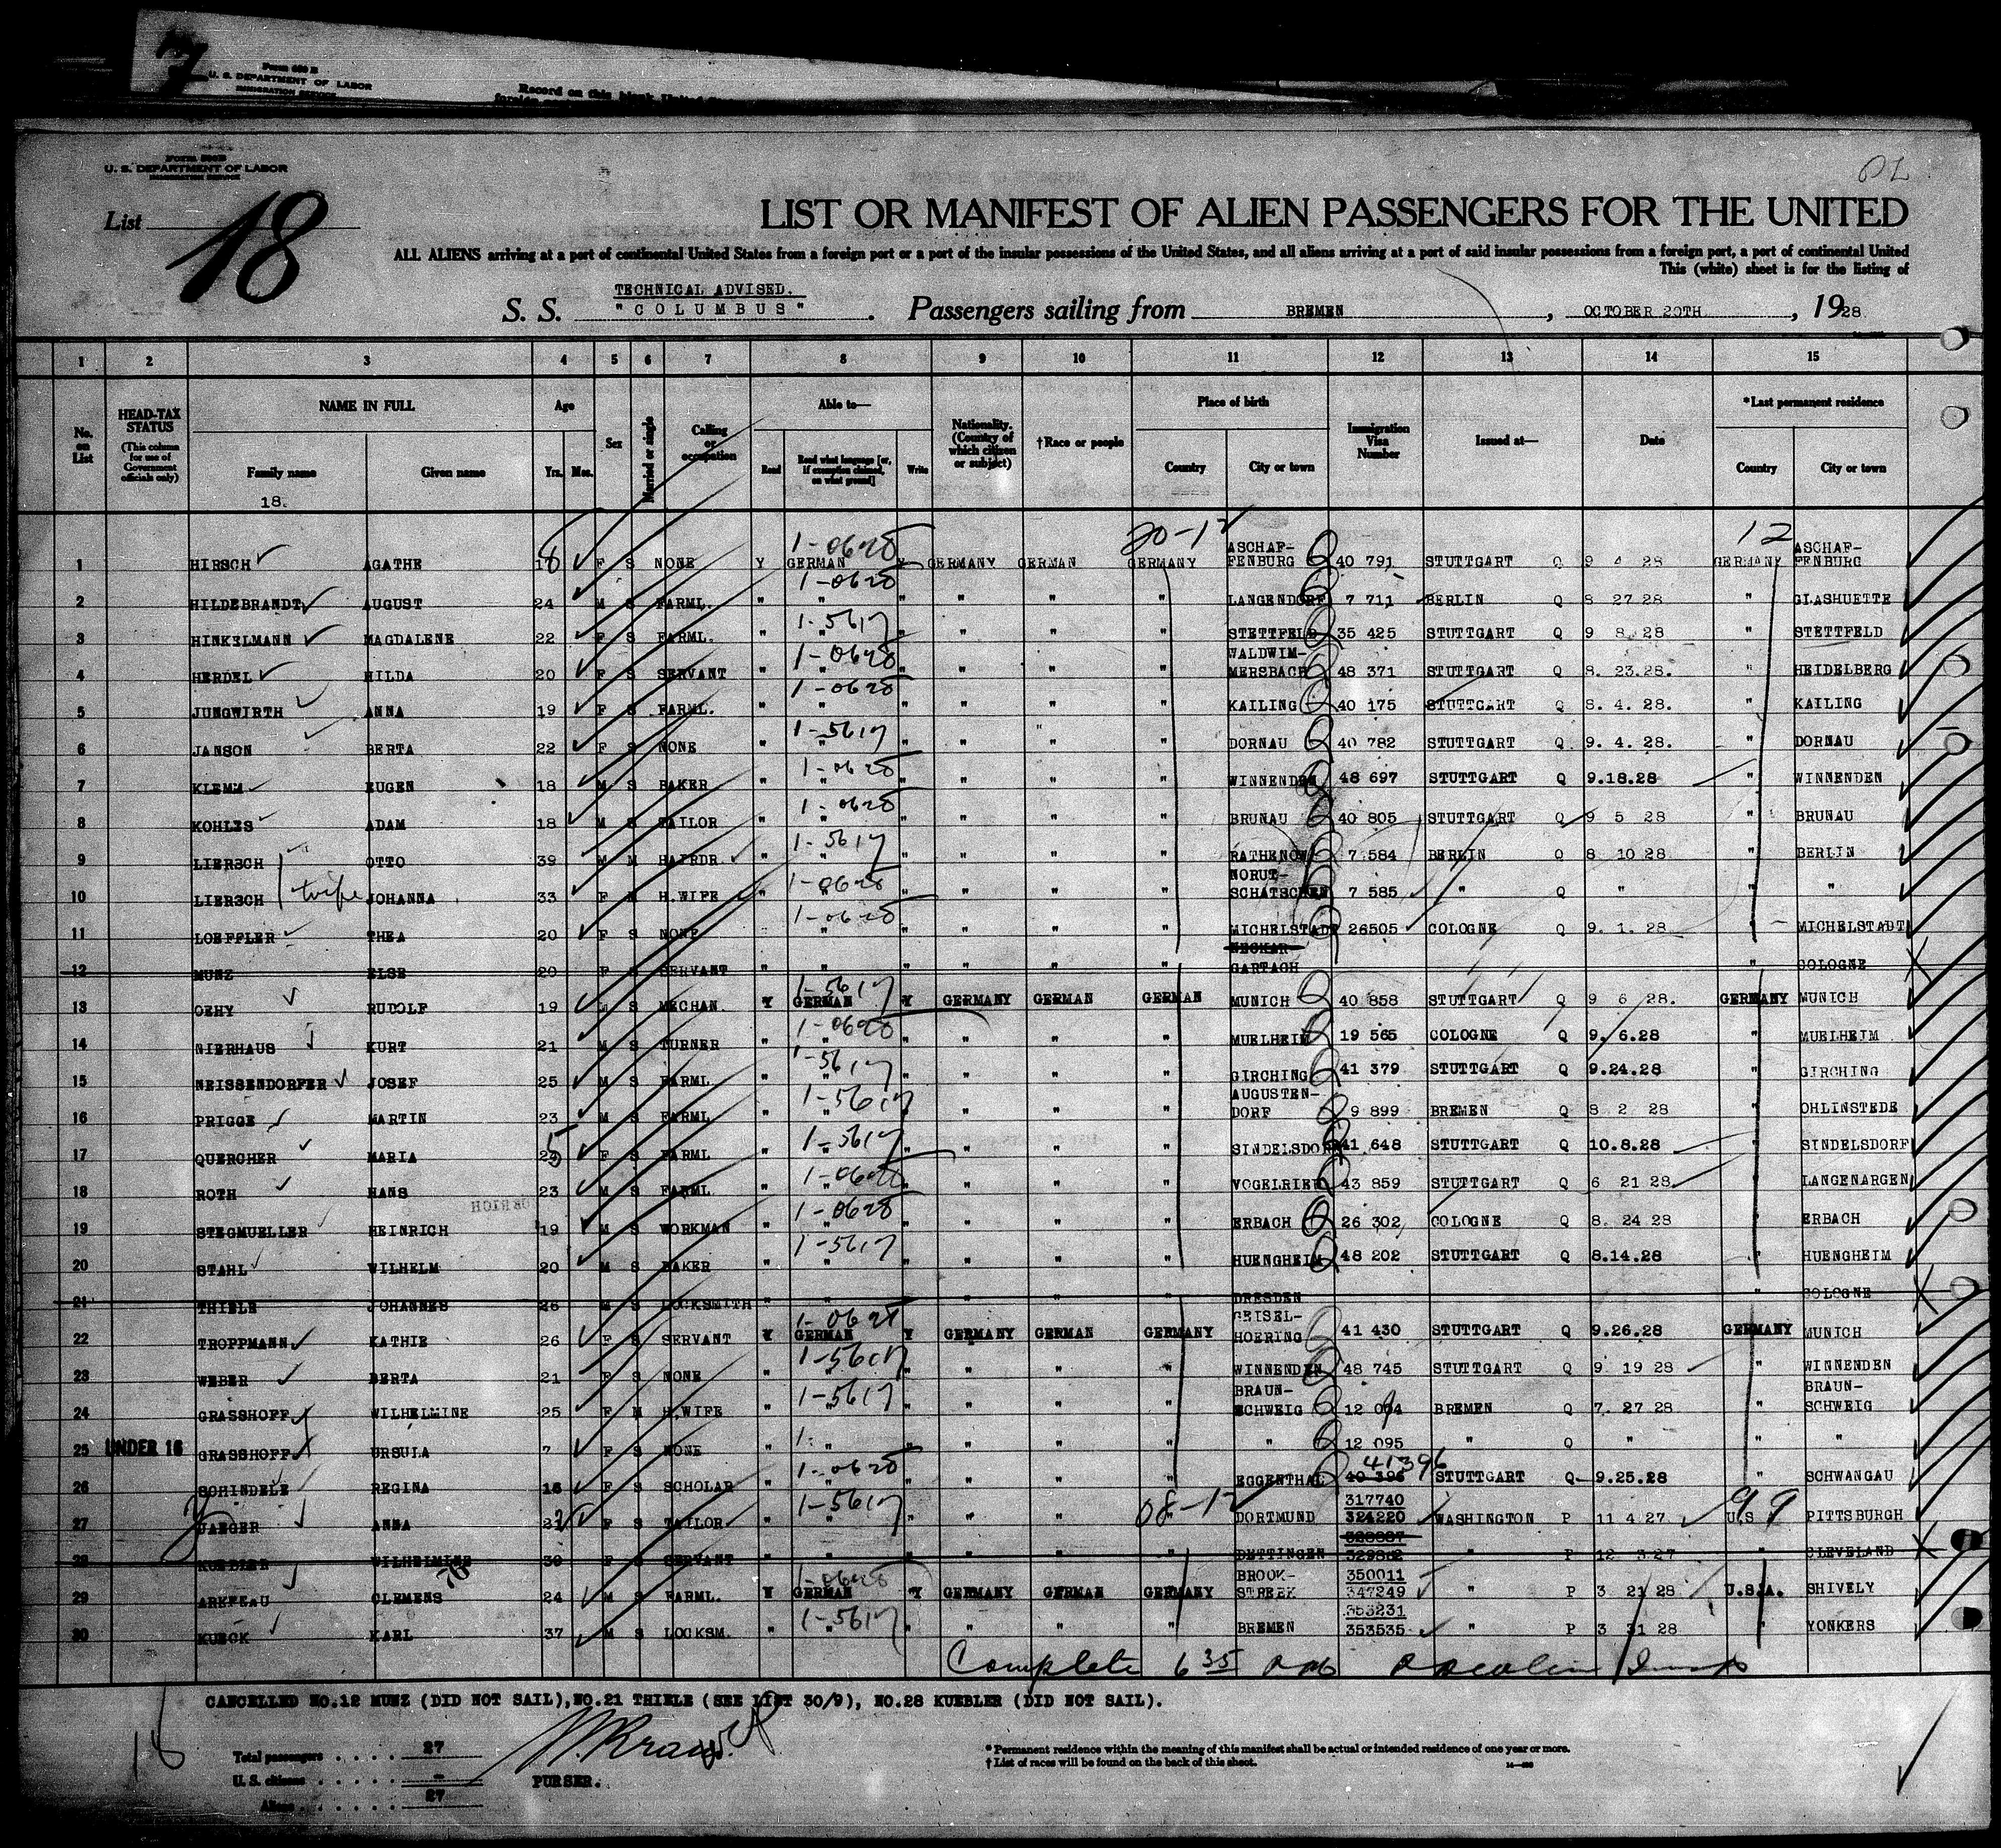 7
Form 500 B
U. S. DEPARTMENT OF LABOR
IMMIGRATION SERVICE
Record on this blank United
U. S. DEPARTMENT OF LABOR
IMMIGRATION SERVICE
List 18
LIST OR MANIFEST OF ALIEN PASSENGERS FOR THE UNITED
ALL ALIENS arriving at a port of continental United States from a foreign port or a port of the insular possessions of the United States, and all aliens arriving at a port of said insular possessions from a foreign port, a port of continental United
This (white) sheet is for the listing of
TECHNICAL ADVISED.
S. S. "COLUMBUS". Passengers sailing from BREMEN, OCTOBER 20TH, 1928
1 2 3 4 5 6 7 8 9 10 11 12 13 14 15
No. on List
HEAD-TAX STATUS
(This column for use of Government officials only)
NAME IN FULL
Family name
Given name
18.
Age
Yrs. Mos.
Sex
Married or single
Calling or occupation
Able to—
Read
Read what language [or, if exemption claimed, on what ground]
Write
Nationality. (Country of which citizen or subject)
†Race or people
Place of birth
Country
City or town
Immigration Visa Number
Issued at—
Date
*Last permanent residence
Country
City or town
20-12 12
1 HIRSCH AGATHE 18 F S NONE Y GERMAN Y GERMANY GERMAN GERMANY ASCHAF-FENBURG 40 791 STUTTGART Q 9 4 28 GERMANY ASCHAF-FENBURG
2 HILDEBRANDT AUGUST 24 M S FARML. " " " " " " LANGENDORF 7 711 BERLIN Q 8 27 28 " GLASHUETTE
3 HINKELMANN MAGDALENE 22 F S FARML. " " " " " " STETTFELD 35 425 STUTTGART Q 9 8 28 " STETTFELD
4 HERDEL HILDA 20 F S SERVANT " " " " " " WALDWIM-MERSBACH 48 371 STUTTGART Q 8. 23.28. " HEIDELBERG
5 JUNGWIRTH ANNA 19 F S FARML. " " " " " " KAILING 40 175 STUTTGART Q 8. 4. 28. " KAILING
6 JANSON BERTA 22 F S NONE " " " " " " DORNAU 40 782 STUTTGART Q 9. 4. 28. " DORNAU
7 KLEMM EUGEN 18 M S BAKER " " " " " " WINNENDEN 48 697 STUTTGART Q 9.18.28 " WINNENDEN
8 KOHLIS ADAM 18 M S TAILOR " " " " " " BRUNAU 40 805 STUTTGART Q 9 5 28 " BRUNAU
9 LIERSCH OTTO 39 M M HAIRDR. " " " " " " RATHENOW 7 584 BERLIN Q 8 10 28 " BERLIN
10 LIERSCH wife JOHANNA 33 F M H.WIFE " " " " " " NORUT-SCHATSCHEN 7 585 " Q " " "
11 LOEFFLER THEA 20 F S NONE " " " " " " MICHELSTADT 26505 COLOGNE Q 9. 1. 28 " MICHELSTADT
12 MUNZ ELSE 20 F S SERVANT " " " " " " NECKAR-GARTACH " COLOGNE
13 OEHY RUDOLF 19 M S MECHAN. Y GERMAN Y GERMANY GERMAN GERMAN MUNICH 40 858 STUTTGART Q 9 6 28. GERMANY MUNICH
14 NIERHAUS KURT 21 M S TURNER " " " " " " MUELHEIM 19 565 COLOGNE Q 9. 6.28 " MUELHEIM
15 NEISSENDORFER JOSEF 25 M S FARML. " " " " " " GIRCHING 41 379 STUTTGART Q 9.24.28 " GIRCHING
16 PRIGGE MARTIN 23 M S FARML. " " " " " " AUGUSTEN-DORF 9 899 BREMEN Q 8 2 28 " OHLINSTEDE
17 QUERCHER MARIA F S FARML " " " " " " SINDELSDORF 41 648 STUTTGART Q 10.8.28 " SINDELSDORF
18 ROTH HANS 23 M S FARML " " " " " " VOGELRIED 43 859 STUTTGART Q 6 21 28 " LANGENARGEN
19 STEGMUELLER HEINRICH 19 M S WORKMAN " " " " " " ERBACH 26 302 COLOGNE Q 8. 24 28 " ERBACH
20 STAHL WILHELM 20 M S BAKER " " " " " " HUENGHEIM 48 202 STUTTGART Q 8.14.28 " HUENGHEIM
21 THIELE JOHANNES 26 M S LOCKSMITH " " " " " " DRESDEN " COLOGNE
22 TROPPMANN KATHIE 26 F S SERVANT Y GERMAN Y GERMANY GERMAN GERMANY GEISEL-HOERING 41 430 STUTTGART Q 9.26.28 GERMANY MUNICH
23 WEBER BERTA 21 F S NONE " " " " " " WINNENDEN 48 745 STUTTGART Q 9 19 28 " WINNENDEN
24 GRASSHOFF WILHELMINE 25 F M H.WIFE " " " " " " BRAUN-SCHWEIG 12 094 BREMEN Q 7. 27 28 " BRAUN-SCHWEIG
25 UNDER 16 GRASSHOFF URSULA 7 F S NONE " " " " " " " 12 095 " Q " " "
26 SCHINDELE REGINA 18 F S SCHOLAR " " " " " " EGGENTHAL 41396 40 396 STUTTGART Q 9.25.28 " SCHWANGAU
27 JAEGER ANNA F S TAILOR " " " " " 08-12 " DORTMUND 317740 324220 WASHINGTON P 11 4 27 U.S 99 PITTSBURGH
28 KUEBLER WILHELMINE 30 F S SERVANT " " " " " " DETTINGEN 329862 " P 12 3 27 " CLEVELAND
29 ARKENAU CLEMENS 24 M S FARML. Y GERMAN Y GERMANY GERMAN GERMANY BROOK-STREEK 350011 347249 " P 3 21 28 U.S.A. SHIVELY
30 KUECK KARL 37 M S LOCKSM. " " " " " " BREMEN 353231 353535 " P 3 31 28 " YONKERS
Complete 6 35
CANCELLED NO.12 MUNZ (DID NOT SAIL),NO.21 THIELE (SEE LIST 30/9), NO.28 KUEBLER (DID NOT SAIL).
18
Total passengers . . . . 27
U. S. citizens . . . . . –
Aliens . . . . . . 27
PURSER.
* Permanent residence within the meaning of this manifest shall be actual or intended residence of one year or more.
† List of races will be found on the back of this sheet.